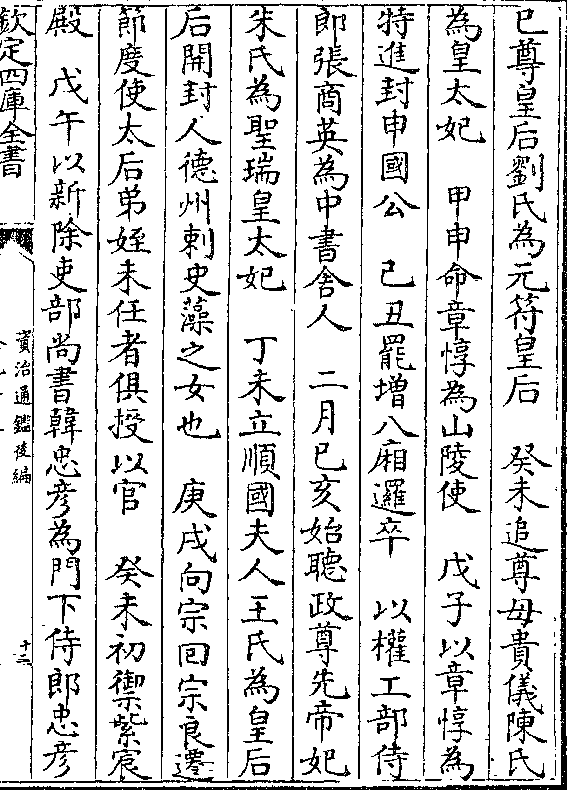 已尊皇后劉氏為元符皇后　癸未追尊母貴儀陳氏
為皇太妃　甲申命章惇為山陵使　戊子以章惇為
特進封申國公　己丑罷增八廂邏卒　以權工部侍
郎張商英為中書舍人　二月己亥始聽政尊先帝妃
朱氏為聖瑞皇太妃　丁未立順國夫人王氏為皇后
后開封人德州刺史藻之女也　庚戌向宗回宗良遷
節度使太后弟姪未任者俱授以官　癸未初御紫宸
殿　戊午以新除吏部尚書韓忠彦為門下侍郎忠彦
欽定四庫全書
資治通鑑後編
十二